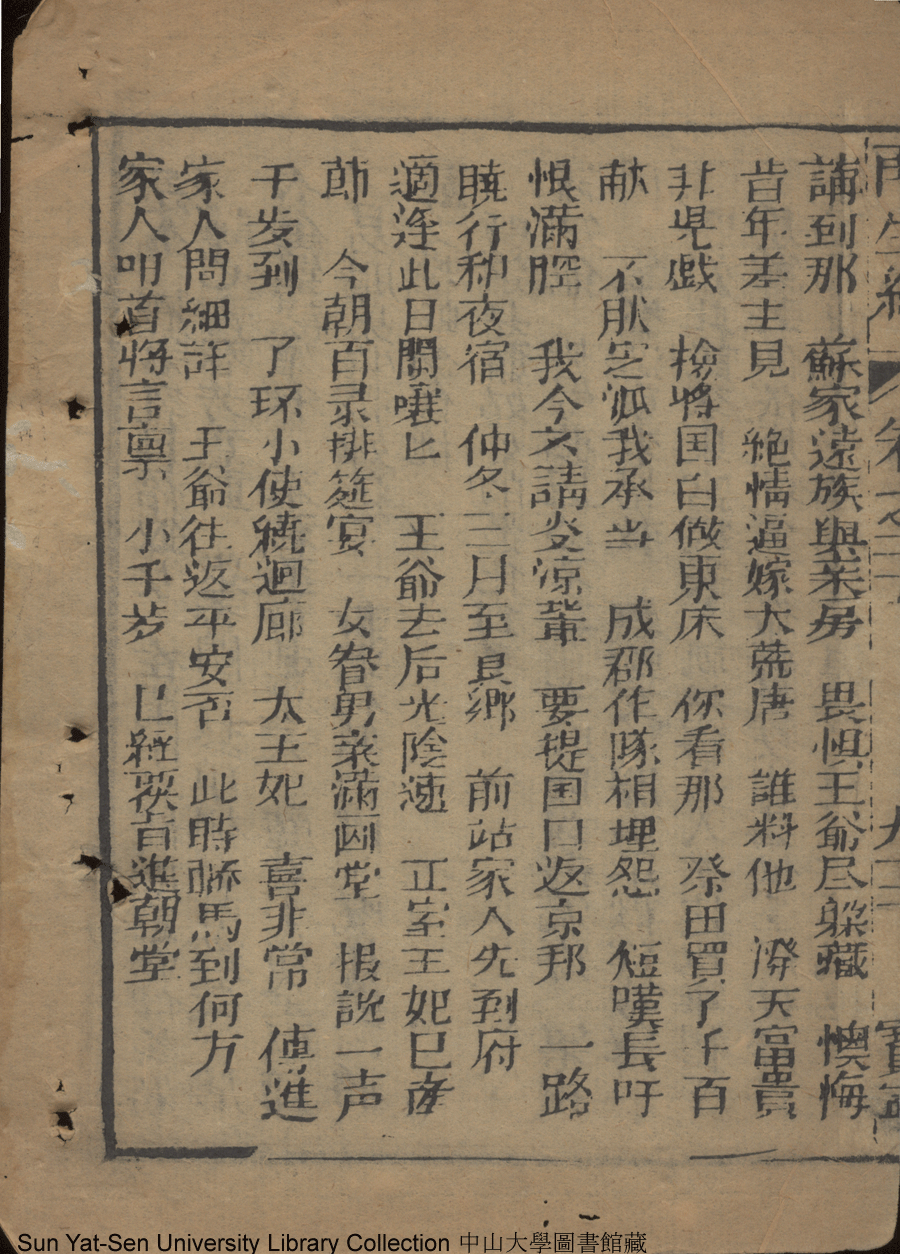 再生緣 卷之二十 九二 寶寧
講到那 蘇家遠族與柒房 畏惧王爺尽躲藏 懊悔
昔年差主見 絶情逼嫁大荒唐 誰料他 潑天富貴
非児戯 撿将国白做東床 你看那 祭田買了千百
献 不肰定派我承当 成郡作隊相埋怨 短嘆長吁
恨滿腔 我今文請炎凉輩 要提国口返京邦 一路
曉行和夜宿 仲冬三月至良郷 前站家人先到府
適逢此日閙嚷匕 王爺去后光陰速 正室王妃巳産
莭 今朝百录排筵宴 女眷男亲滿画堂 报説一声
千歩到 了环小使繞迴廊 太王妃 喜非常 傳進
家人問細詳 王爺往返平安否 此時驕馬到何方
家人叩首将言禀 小千岁 巳經候旨進朝堂
Sun Yat-Sen University Library Collection 中山大學圖書館藏